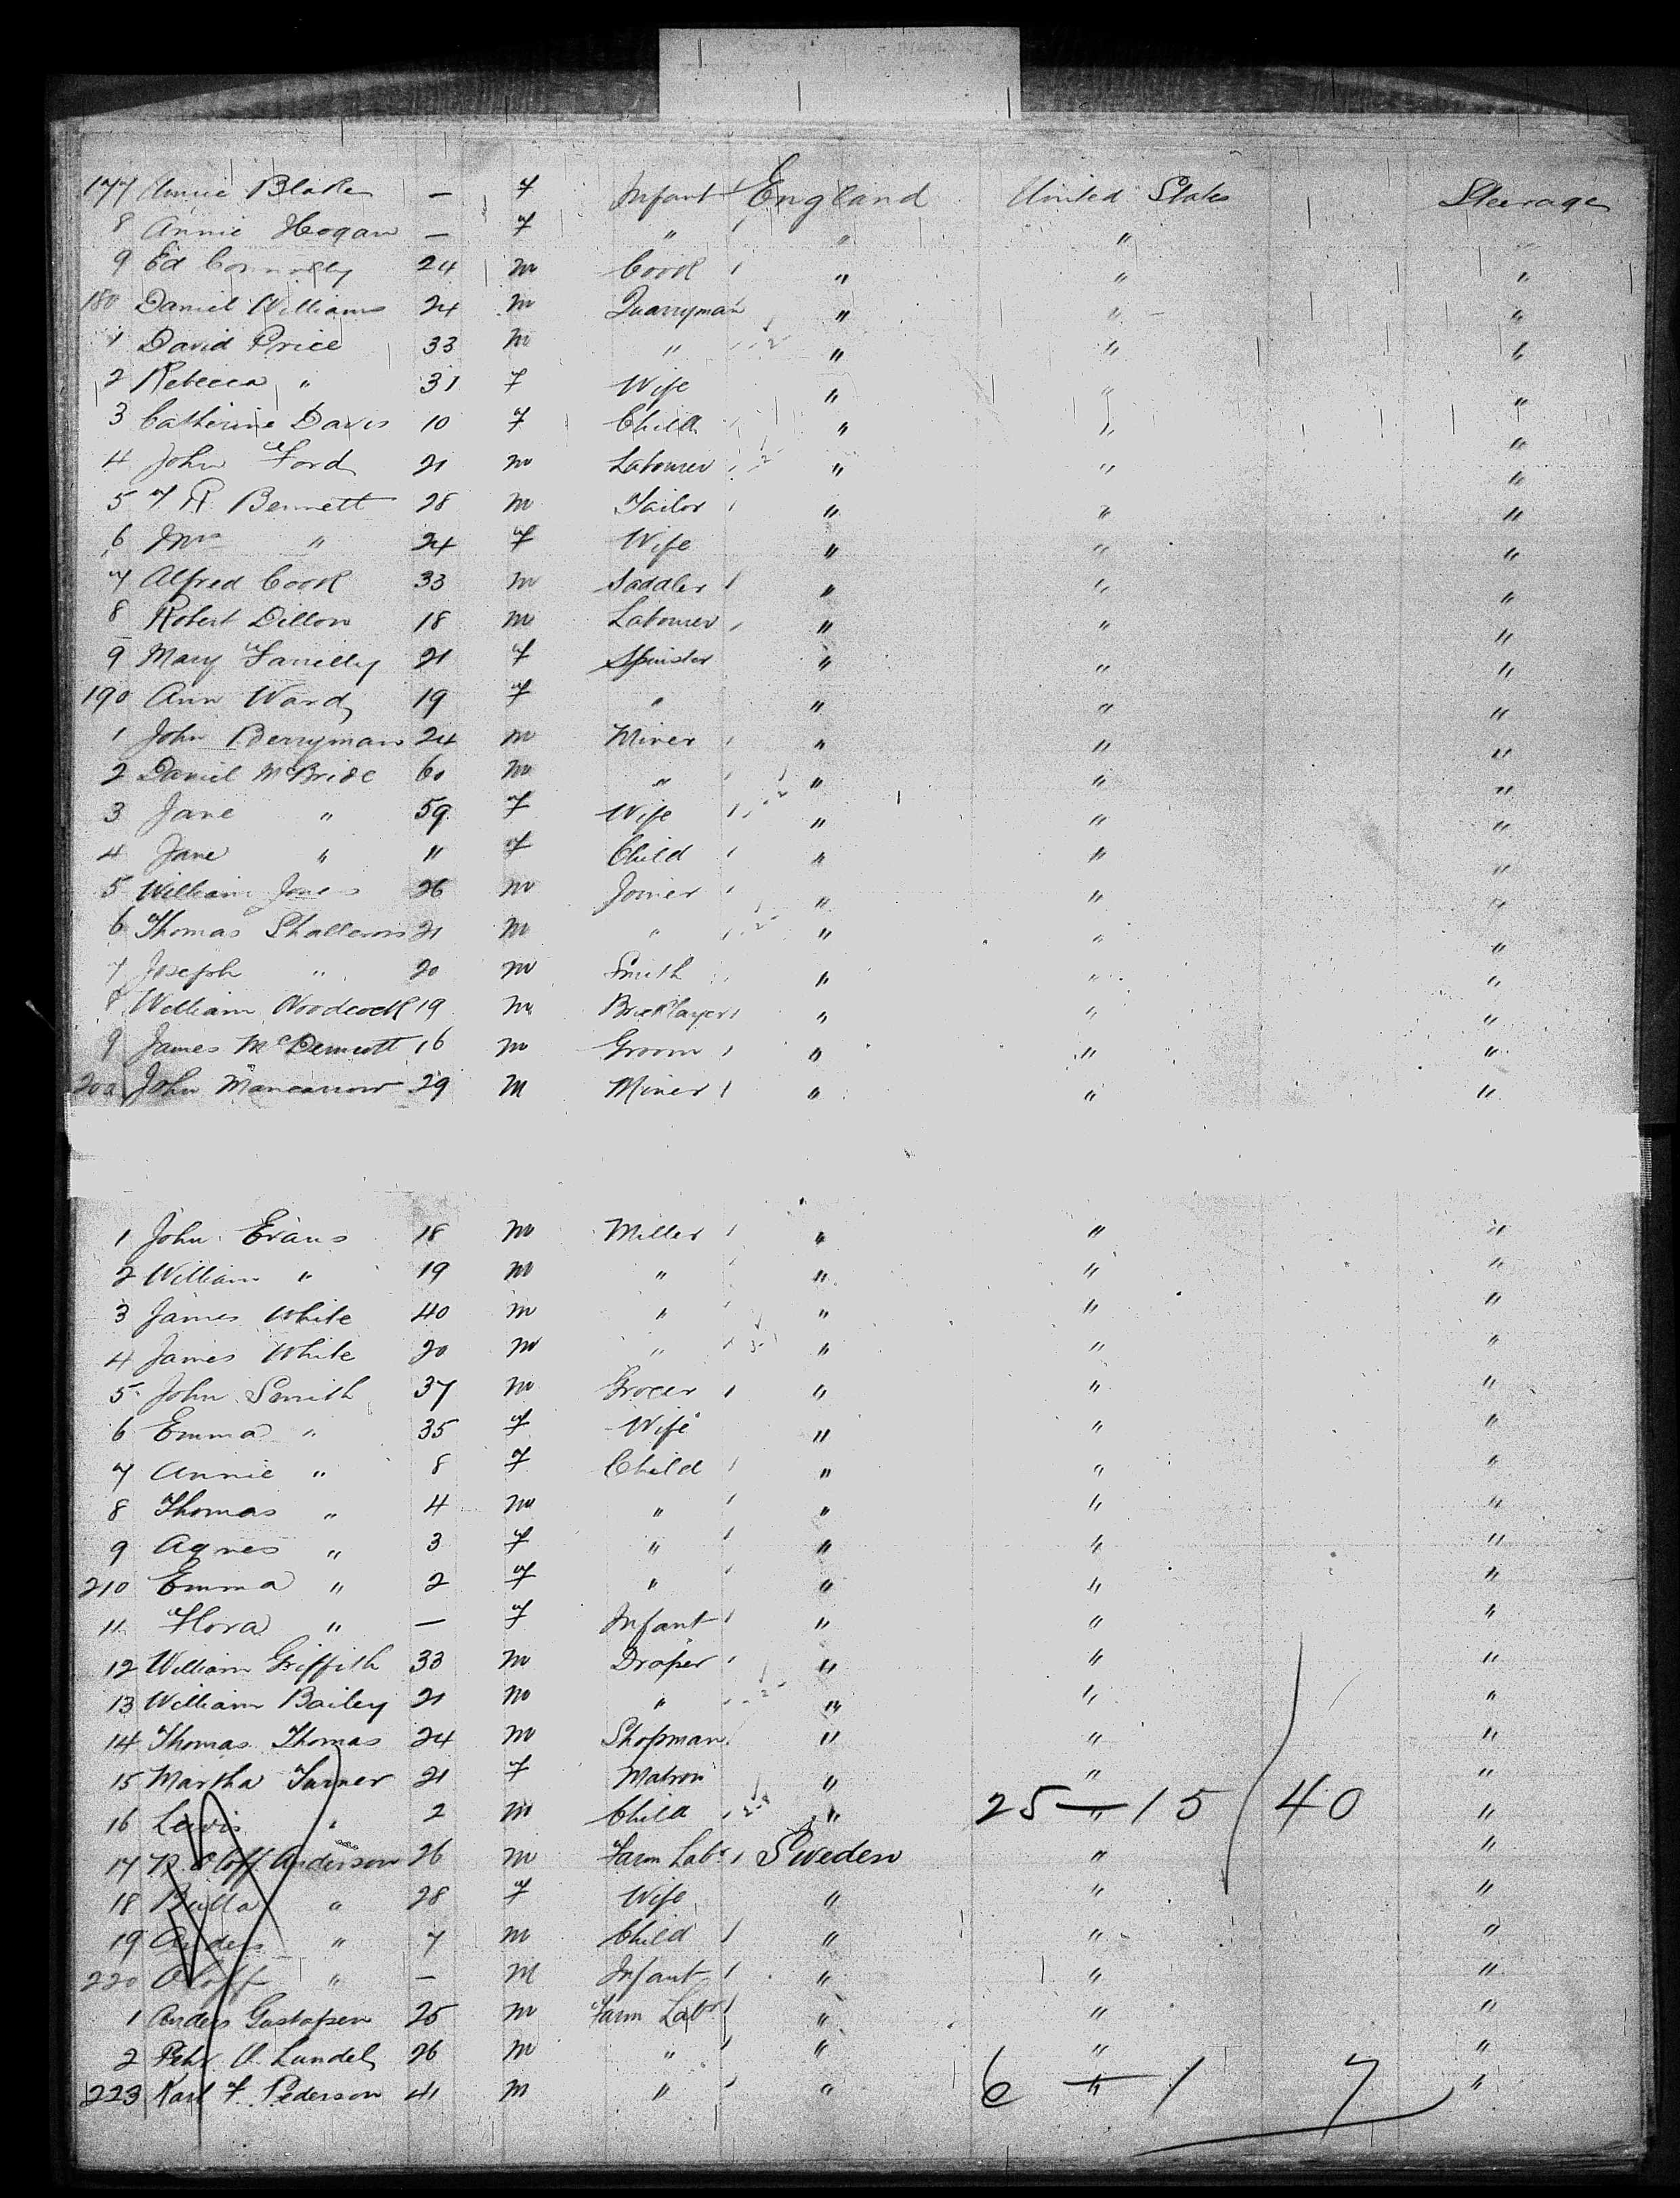 177 Annie Blake — F Infant England United States Steerage
8 Annie Hogan — F " " "
9 Ed Connolly 24 M Cook " " "
180 Daniel Williams 24 M Quarryman " " "
1 David Price 33 M " " " "
2 Rebecca " 31 F Wife " " "
3 Catherine Davis 10 F Child " " "
4 John Ford 21 M Labourer " " "
5 F R Bennett 28 M Tailor " " "
6 Mrs " 24 F Wife " " "
7 Alfred Cook 33 M Saddler " " "
8 Robert Dillon 18 M Labourer " " "
9 Mary Farrelly 21 F Spinster " " "
190 Ann Ward 19 F " " " "
1 John Berryman 24 M Miner " " "
2 Daniel McBride 60 M " " " "
3 Jane " 59 F Wife " " "
4 Jane " 11 F Child " " "
5 William Jones 26 M Joiner " " "
6 Thomas 21 M " " " "
7 Joseph " 20 M Smith " " "
8 William Woodcock 19 M Bricklayer " " "
9 James McDermott 16 M Groom " " "
200 John 29 M Miner " " "
1 John Evans 18 M Miller " " "
2 William " 19 M " " " "
3 James White 40 M " " " "
4 James White 20 M " " " "
5 John Smith 37 M Grocer " " "
6 Emma " 35 F Wife " " "
7 Annie " 8 F Child " " "
8 Thomas " 4 M " " " "
9 Agnes " 3 F " " " "
210 Emma " 2 F " " " "
11 Flora " — F Infant " " "
12 William Griffith 33 M Draper " " "
13 William Bailey 21 M " " " "
14 Thomas Thomas 24 M Shopman " " "
15 Martha Turner 21 F Matron " " "
16 Lewis " 2 M Child " 25 — 15 40 "
17 Oloff Anderson 26 M Farm Labr Sweden " "
18 " 28 F Wife " " "
19 Anders " 7 M Child " " "
220 Oloff " — M Infant " " "
1 Anders Gustafsen 25 M Farm Labr " " "
2 Pehr O. Lundel 26 M " " " "
223 Karl F. Pederson 41 M " " 6 — 1 7 "